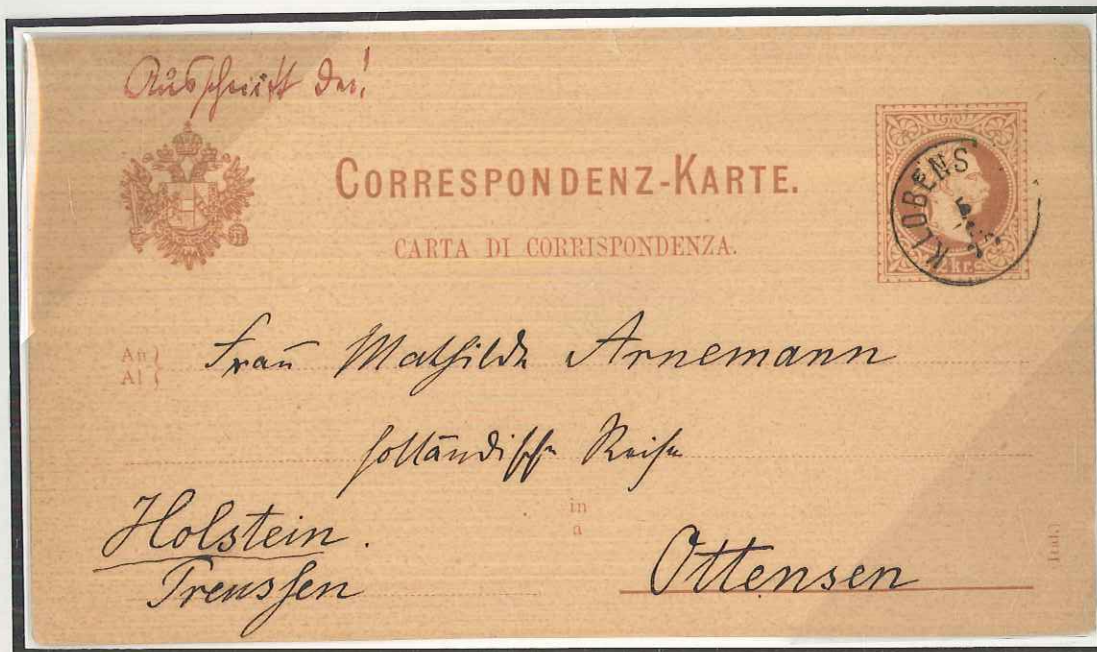 Ausschnitt der!
CORRESPONDENZ-KARTE.
CARTA DI CORRISPONDENZA.
KLOBENS
2 kr.
An
Al
Frau Mathilde Arnemann
holländische Reihe
in
a
Holstein.
Preussen
Ottensen
(Ital.)